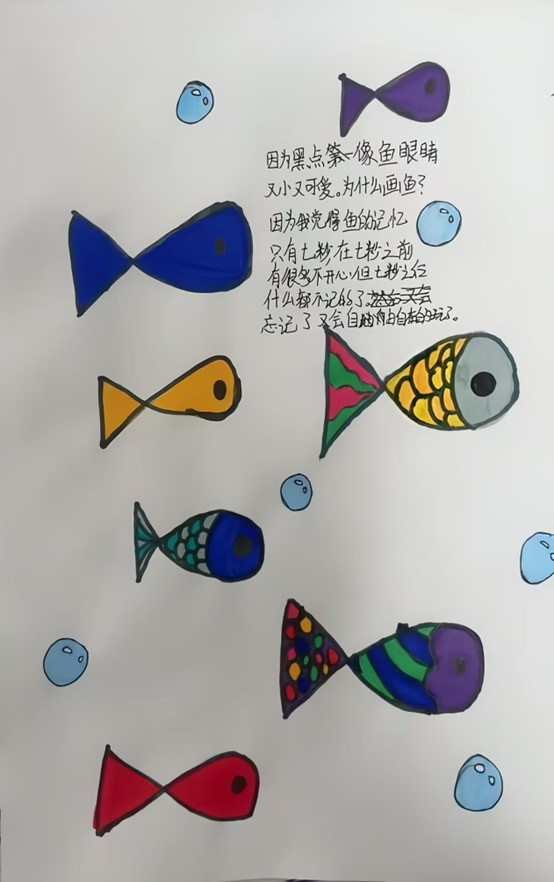 因为黑点第一像鱼眼睛
又小又可爱。为什么画鱼？
因为我觉得鱼的记忆
只有七秒在七秒之前
有很多不开心,但七秒之后
什么都不记的了
忘记了又会自由自在的玩了。